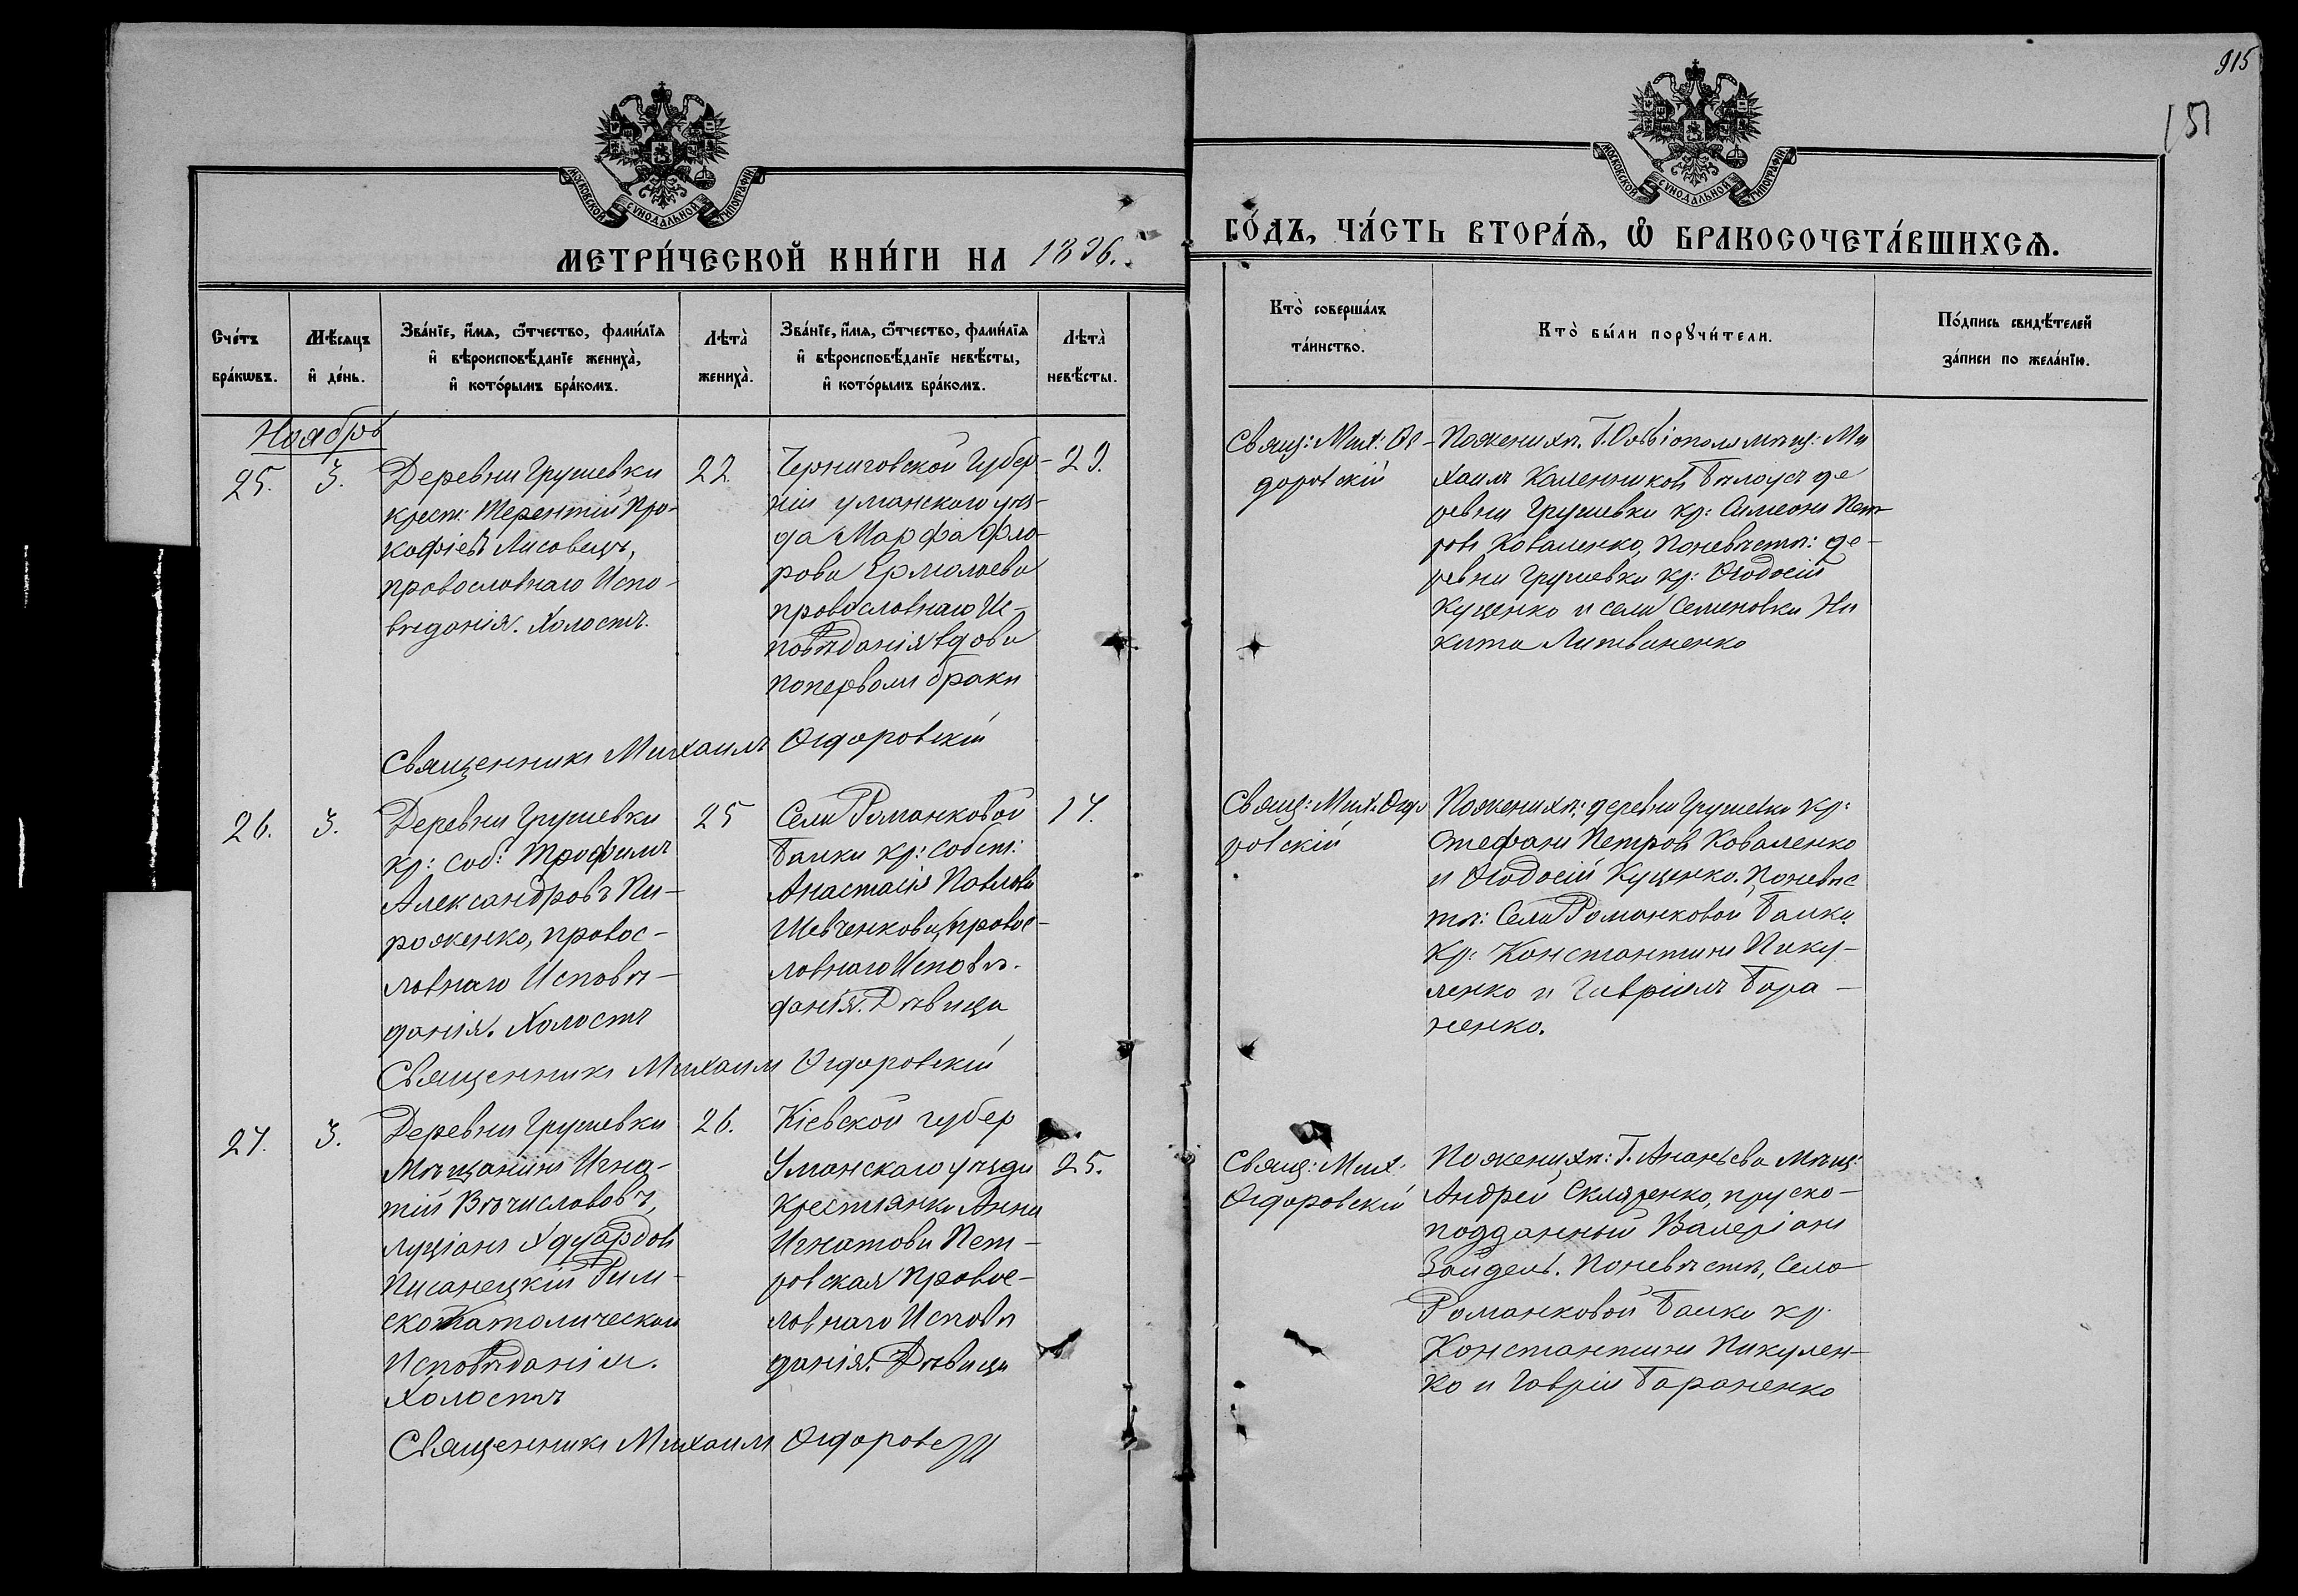 915
151
МОСКОВСКОЙ СѴНОДАЛЬНОЙ ТИПОГРАФІИ
МОСКОВСКОЙ СѴНОДАЛЬНОЙ ТИПОГРАФІИ
МЕТРИ́ЧЕСКОЙ КНИ́ГИ НА 1896.
ГО́ДЪ, ЧА́СТЬ ВТОРА́Ѧ, Ѽ БРАКОСОЧЕТА́ВШИХСѦ.
Сче́тъ
бра́кѡвъ.
Мѣ́сяцъ
и҆ де́нь.
Зва́нїе, и҆́мѧ, ѻ҆́тчество, фами́лїѧ
и҆ вѣроисповѣ́данїе жениха̀,
и҆ кото́рымъ бра́комъ.
Лѣта̀
жениха̀.
Зва́нїе, и҆́мѧ, ѻ҆́тчество, фами́лїѧ
и҆ вѣроисповѣ́данїе невѣ́сты,
и҆ кото́рымъ бра́комъ.
Лѣта̀
невѣ́сты.
Кто̀ соверша́лъ
та́инство.
Кто̀ бы́ли порꙋчи́тели.
По́дпись свидѣ́телей
за́писи по жела́нїю.
Ноябрь
25. 3.
Деревни Грушевки
крест: Терентій Про-
кофіевъ Лисовецъ,
православнаго Испо-
вѣданія. Холостъ.
22
Черниговской Губер-
ніи уманского уѣз-
да Марфа Фло-
рова Ермолаева
православнаго Ис-
повѣданія вдова
поперволи браки
29.
Свящ: Мих: Ѳе-
доровскій
Поженихѣ. Г. Ольвіополя мѣщ: Ми
хаилъ Каленниковъ Бѣлоусъ де
ревни Грушевки кр: Симеонъ Пет-
ровъ Коваленко, Поневѣстѣ: де-
ревни Грушевки кр: Ѳеодосій
Куценко и села Семеновки Ни
кита Литвиненко
Священникъ Михаилъ Ѳедоровскій
26. 3.
Деревни Грушевки
кр: соб: Трофимъ
Александровъ Пи-
роженко, правос-
лавнаго Исповѣ-
данія. Холостъ
25
Села Романковой
Балки кр: собст:
Анастасія Павлова
Шевченкова, правос-
лавнаго Исповѣ-
данія. Дѣвица
17.
Свящ: Мих. Ѳедо
ровскій
Поженихѣ: деревни Грушевки кр:
Стефанъ Петровъ Коваленко
и Ѳеодосій Куценко. Поневѣс
тѣ: Села Романковой Балки
кр: Константинъ Пику-
ленко и Гавріилъ Бара-
ненко.
Священникъ Михаилъ Ѳедоровскій
27. 3.
Деревни Грушевки
Мѣщанинъ Игна-
тій Вѣчиславовъ,
луціанъ Хдуардовъ
Писанецкій Рим-
скокатолическаго
Исповѣданія.
Холостъ
26.
Кіевской губер
Уманскаго уѣзда
Крестьянка Анна
Игнатова Пет-
ровская правос-
лавнаго Исповѣ
данія. Дѣвица
25.
Свящ: Мих:
Ѳедоровскій
По женихѣ: Г. Ананьева Мѣщ:
Андрей Скляренко, пруско-
подданный Валеріанъ
Зайдель. Поневѣстѣ, Села
Романковой Балки кр.
Константинъ Пикулен-
ко и Гавріил Бараненко
Священникъ Михаилъ Ѳедоровскій